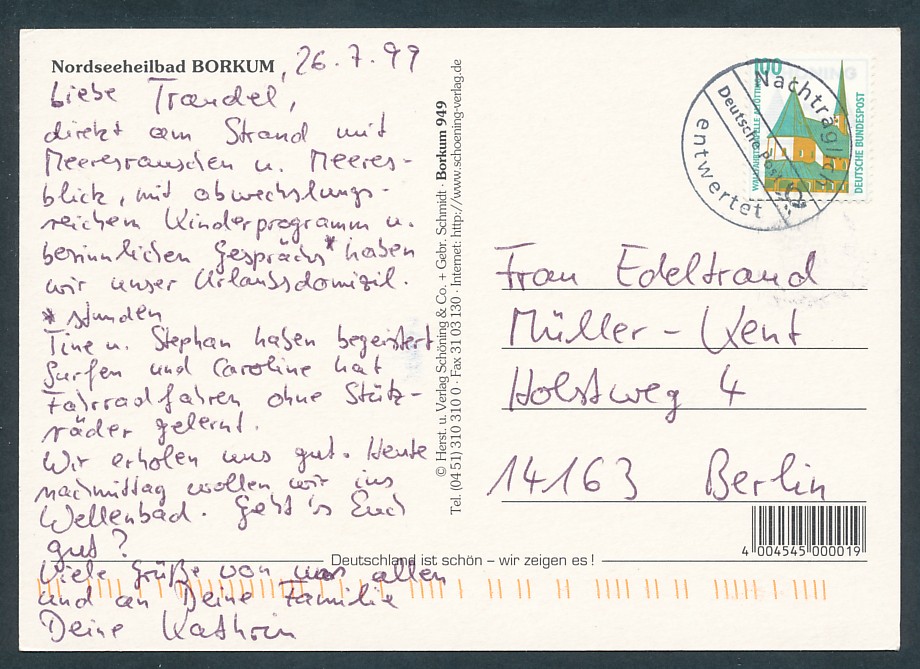 Nordseeheilbad BORKUM, 26.7.99
Liebe Traudel,
direkt am Strand mit
Meeresrauschen u. Meeres-
blick, mit abwechslungs-
reichem Kinderprogramm u.
besinnlichen Gesprächs* haben
wir unser Urlaubsdomizil.
* stunden
Tine u. Stephan haben begeistert
Surfen und Caroline hat
Fahrradfahren ohne Stütz-
räder gelernt.
Wir erholen uns gut. Heute
nachmittag wollen wir ins
Wellenbad. Geht's Euch
gut?
Viele Grüße von uns allen
und an Deine Familie
Deine Kathrin
© Herst. u. Verlag Schöning & Co. + Gebr. Schmidt · Borkum 949
Tel. (04 51) 310 310 0 · Fax 31 03 130 · Internet: http://www.schoening-verlag.de
Deutschland ist schön – wir zeigen es!
100
DEUTSCHE BUNDESPOST
Nachträglich
Deutsche Post
entwertet
Frau Edeltraud
Müller-Kent
Holstweg 4
14163 Berlin
4 004545 000019